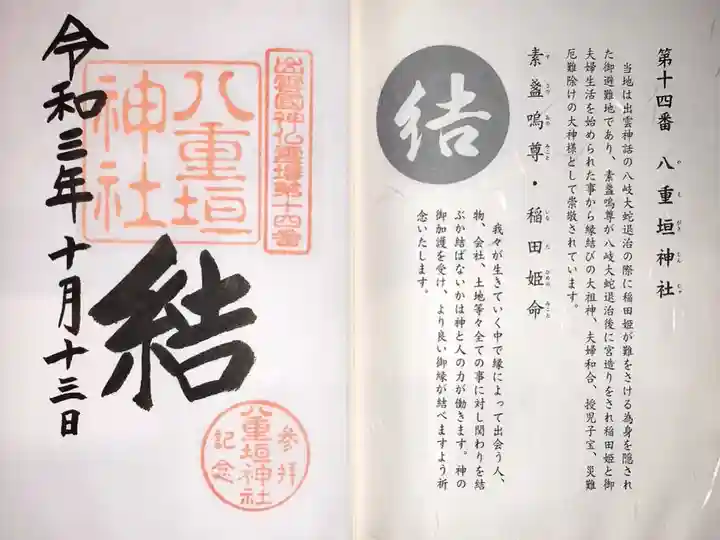 第十四番 八重垣神社
やえがきじんじゃ
当地は出雲神話の八岐大蛇退治の際に稲田姫が難をさける為身を隠され
た御避難地であり、素盞嗚尊が八岐大蛇退治後に宮造りをされ稲田姫と御
夫婦生活を始められた事から縁結びの大祖神、夫婦和合、授児子宝、災難
厄難除けの大神様として崇敬されています。
素盞嗚尊・稲田姫命
すさのおのみこと いなたひめのみこと
結
我々が生きていく中で縁によって出会う人、
物、会社、土地等々全ての事に対し関わりを結
ぶか結ばないかは神と人の力が働きます。神の
御加護を受け、より良い御縁が結べますよう祈
念いたします。
出雲國神仏霊場第十四番
八重垣
神社
結
参拝
八重垣神社
記念
令和三年十月十三日